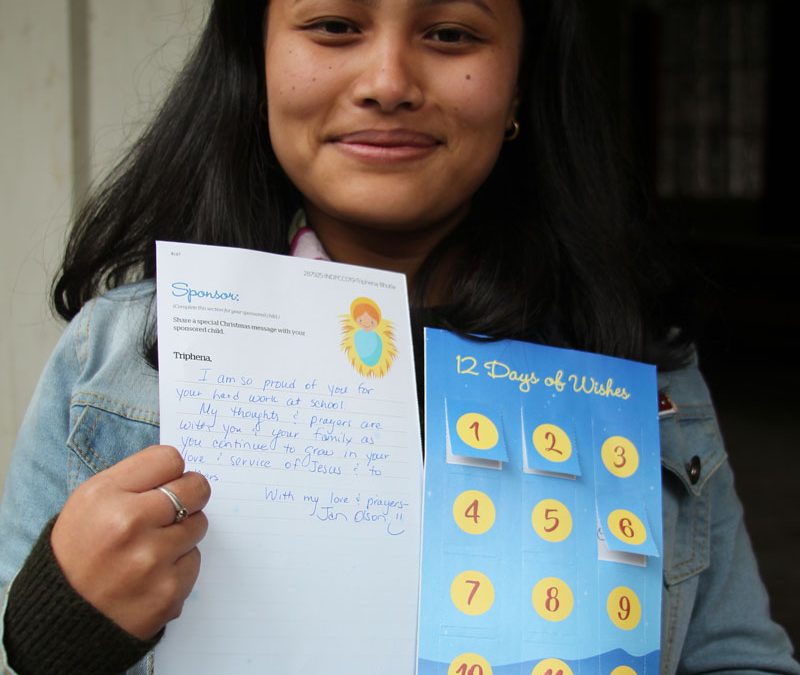 Sponsor:
(Complete this section for your sponsored child.)
Share a special Christmas message with your
sponsored child.
Triphena,
I am so proud of you for
your hard work at school.
My thoughts & prayers are
with you & your family as
you continue to grow in your
love & service of Jesus & to
With my love & prayers-
Jan Olson
12 Days of Wishes
1
2
3
4
5
6
7
8
9
10
11